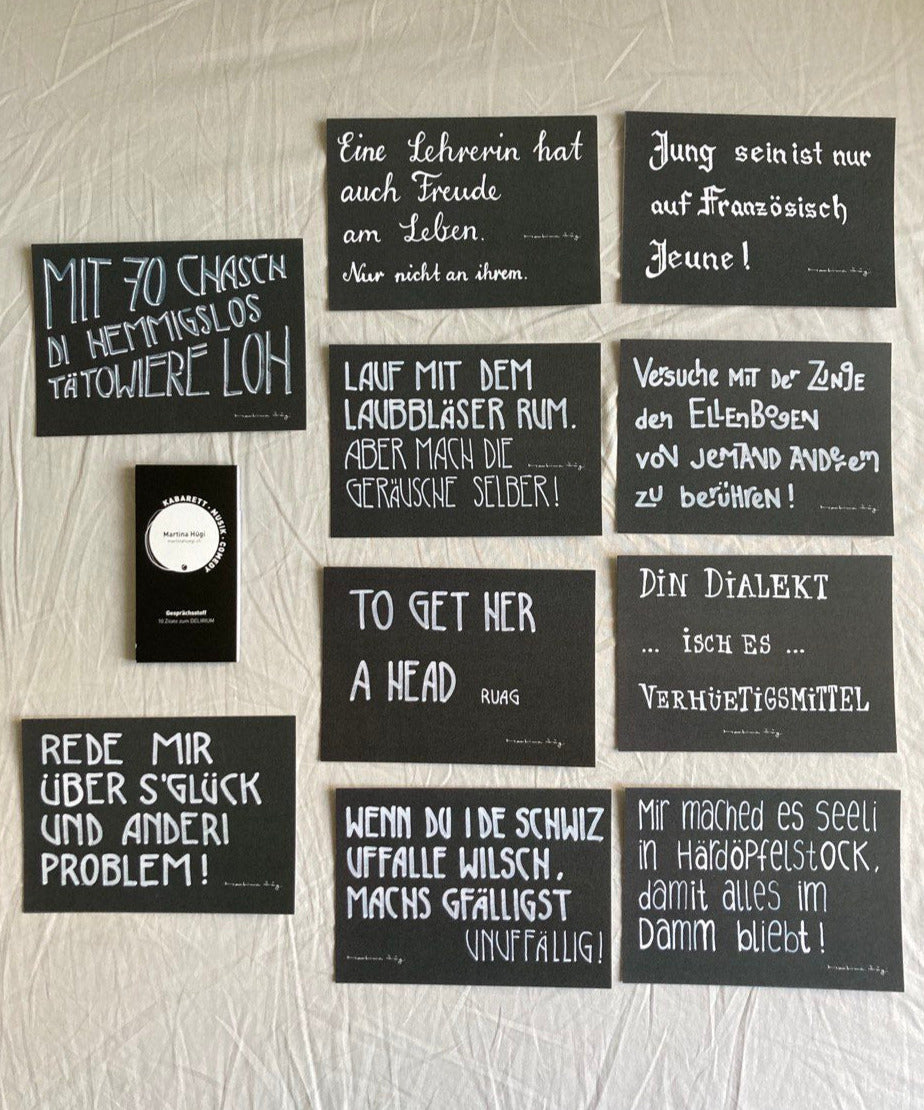 MIT 70 CHASCH
DI HEMMIGSLOS
TÄTOWIERE LOH
Martina Hügi
KABARETT · MUSIK · COMEDY
Martina Hügi
martinahuegi.ch
Gesprächsstoff
10 Zitate zum DELIRIUM
REDE MIR
ÜBER S'GLÜCK
UND ANDERI
PROBLEM!
Martina Hügi
Eine Lehrerin hat
auch Freude
am Leben.
Martina Hügi
Nur nicht an ihrem.
LAUF MIT DEM
LAUBBLÄSER RUM.
ABER MACH DIE
Martina Hügi
GERÄUSCHE SELBER!
TO GET HER
A HEAD RUAG
Martina Hügi
WENN DU I DE SCHWIZ
UFFALLE WILSCH,
MACHS GFÄLLIGST
UNUFFÄLLIG!
Martina Hügi
Jung sein ist nur
auf Französisch
Jeune!
Martina Hügi
Versuche MIT Der ZUNGE
den ELLENBOGEN
VON JEMAND ANDEREM
ZU berühren!
Martina Hügi
DiN DiALEKT
... iSCH ES ...
VERHÜETiGSMiTTEL
Martina Hügi
Mir mached es Seeli
in HärdÖpfelstOCK,
damit alles im
Damm bliebt!
Martina Hügi